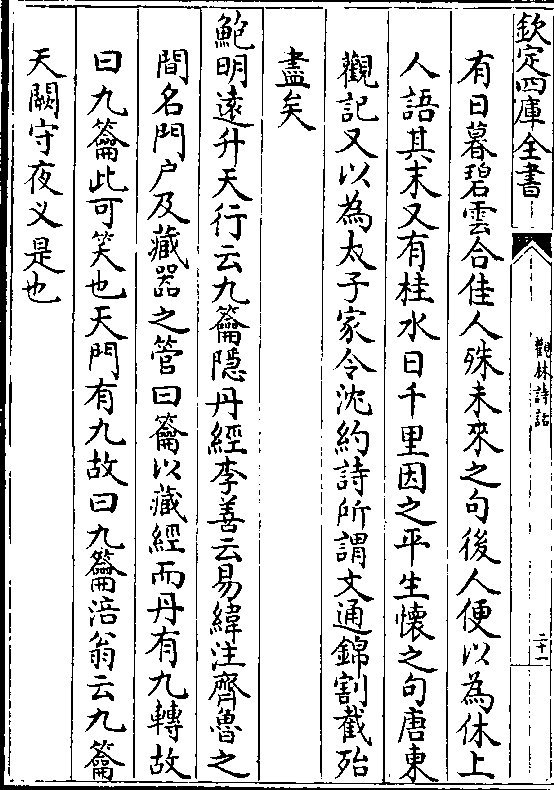 欽定四庫全書
觀林詩話
二十一
有日暮碧雲合佳人殊未來之句後人便以為休上
人語其末又有桂水日千里因之平生懷之句唐東
觀記又以為太子家令沈約詩所謂文通錦割截殆
盡矣
鮑明遠升天行云九籥隱丹經李善云易緯注齊魯之
間名門户及藏器之管曰籥以藏經而丹有九轉故
曰九籥此可笑也天門有九故曰九籥涪翁云九籥
天闕守夜义是也